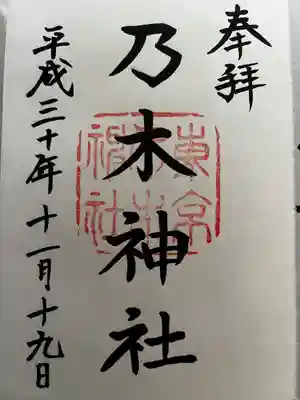 奉拝
乃木神社
東京乃木神社
平成三十年十一月十九日